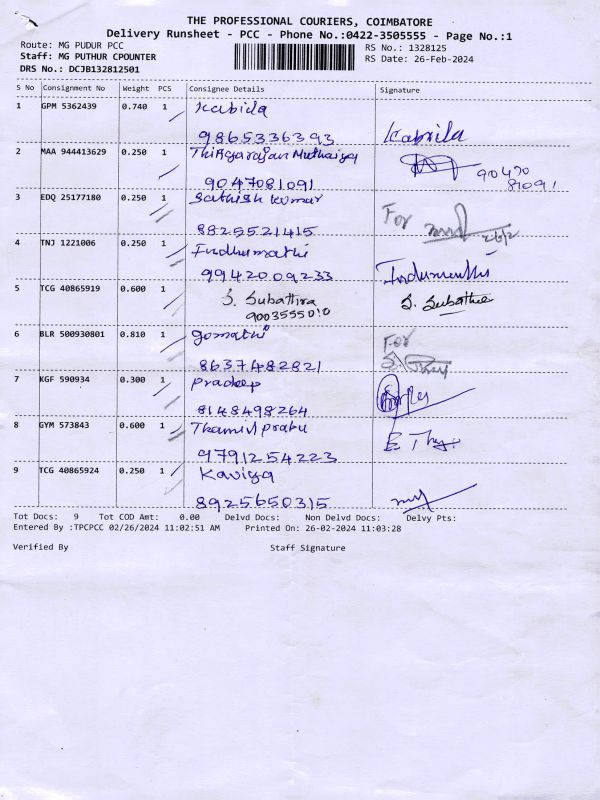 THE PROFESSIONAL COURIERS, COIMBATORE
Delivery Runsheet - PCC - Phone No.:0422-3505555 - Page No.:1
Route: MG PUDUR PCC RS No.: 1328125
Staff: MG PUTHUR CPOUNTER RS Date: 26-Feb-2024
DRS No.: DCJB132812501
S No Consignment No Weight PCS Consignee Details Signature
1 GPM 5362439 0.740 1 Kabila
9865336393 Kabila
2 MAA 944413629 0.250 1 Thiagarajan Muthaiya
9047081091 90470
81091
3 EDQ 25177180 0.250 1 Sathish Kumar
8825521415 For
4 TNJ 1221006 0.250 1 Indhumathi
9942009233 Indumathi
5 TCG 40865919 0.600 1 S. Subathra S. Subathra
9003555010
6 BLR 500930801 0.810 1 gomathi For
8637482821
7 KGF 590934 0.300 1 Pradeep
8148498264
8 GYM 573843 0.600 1 Thamil prabu
9791254223
9 TCG 40865924 0.250 1 Kaviya
8925650315
Tot Docs: 9 Tot COD Amt: 0.00 Delvd Docs: Non Delvd Docs: Delvy Pts:
Entered By :TPCPCC 02/26/2024 11:02:51 AM Printed On: 26-02-2024 11:03:28
Verified By Staff Signature